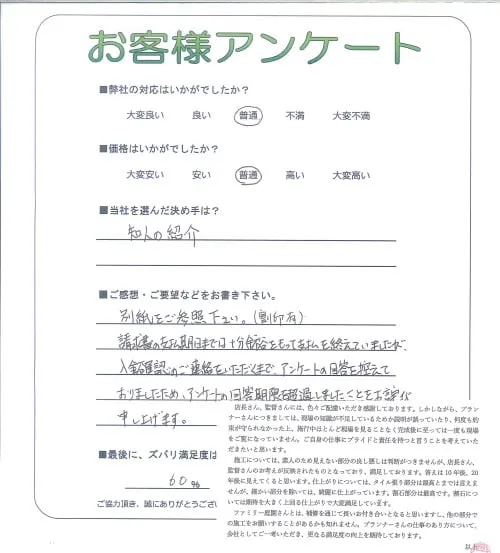 お客様アンケート
■弊社の対応はいかがでしたか?
大変良い 良い 普通 不満 大変不満
■価格はいかがでしたか?
大変安い 安い 普通 高い 大変高い
■当社を選んだ決め手は?
知人の紹介
■ご感想・ご要望などをお書き下さい。
別紙をご参照下さい。(割印有)
請求書の支払期日まで日十分余裕をもって支払を終えていましたが、
入金確認のご連絡をいただくまで、アンケートの回答を控えて
おりましたため、アンケートの回答期限を超過しましたことをお詫び
申し上げます。
■最後に、ズバリ満足度は
60%
ご協力頂き、誠にありがとうござい
店長さん、監督さんには、色々ご配慮いただき感謝しております。しかしながら、プラン
ナーさんにつきましては、現場の知識が不足しているためか説明が誤っていたり、何度も約
束が守られなかった上、施行中はほとんど現場を見ることなく完成後に至っては一度も現場
をご覧になっていません。ご自身の仕事にプライドと責任を持つと言うことを考えていただ
きたいと思います。
施工については、素人のため見えない部分の良し悪しは判断がつきませんが、店長さん、
監督さんのお考えが反映されたものとなっており、満足しております。答えは10年後、20
年後に見えてくると思います。仕上がりについては、タイル張り部分は最高とまでは言えま
せんが、細かい部分を除いては、綺麗に仕上がっています。割石部分は最高です。割石につ
いては期待を大きく上回る仕上がりで大変満足しています。
ファミリー庭園さんとは、補修を通じて長いお付き合いとなると思いますし、他の部分で
の施工をお願いすることがあるかも知れません。プランナーさんの仕事のあり方について、
会社としてご一考いただき、更なる満足度の向上を期待しております。
以上